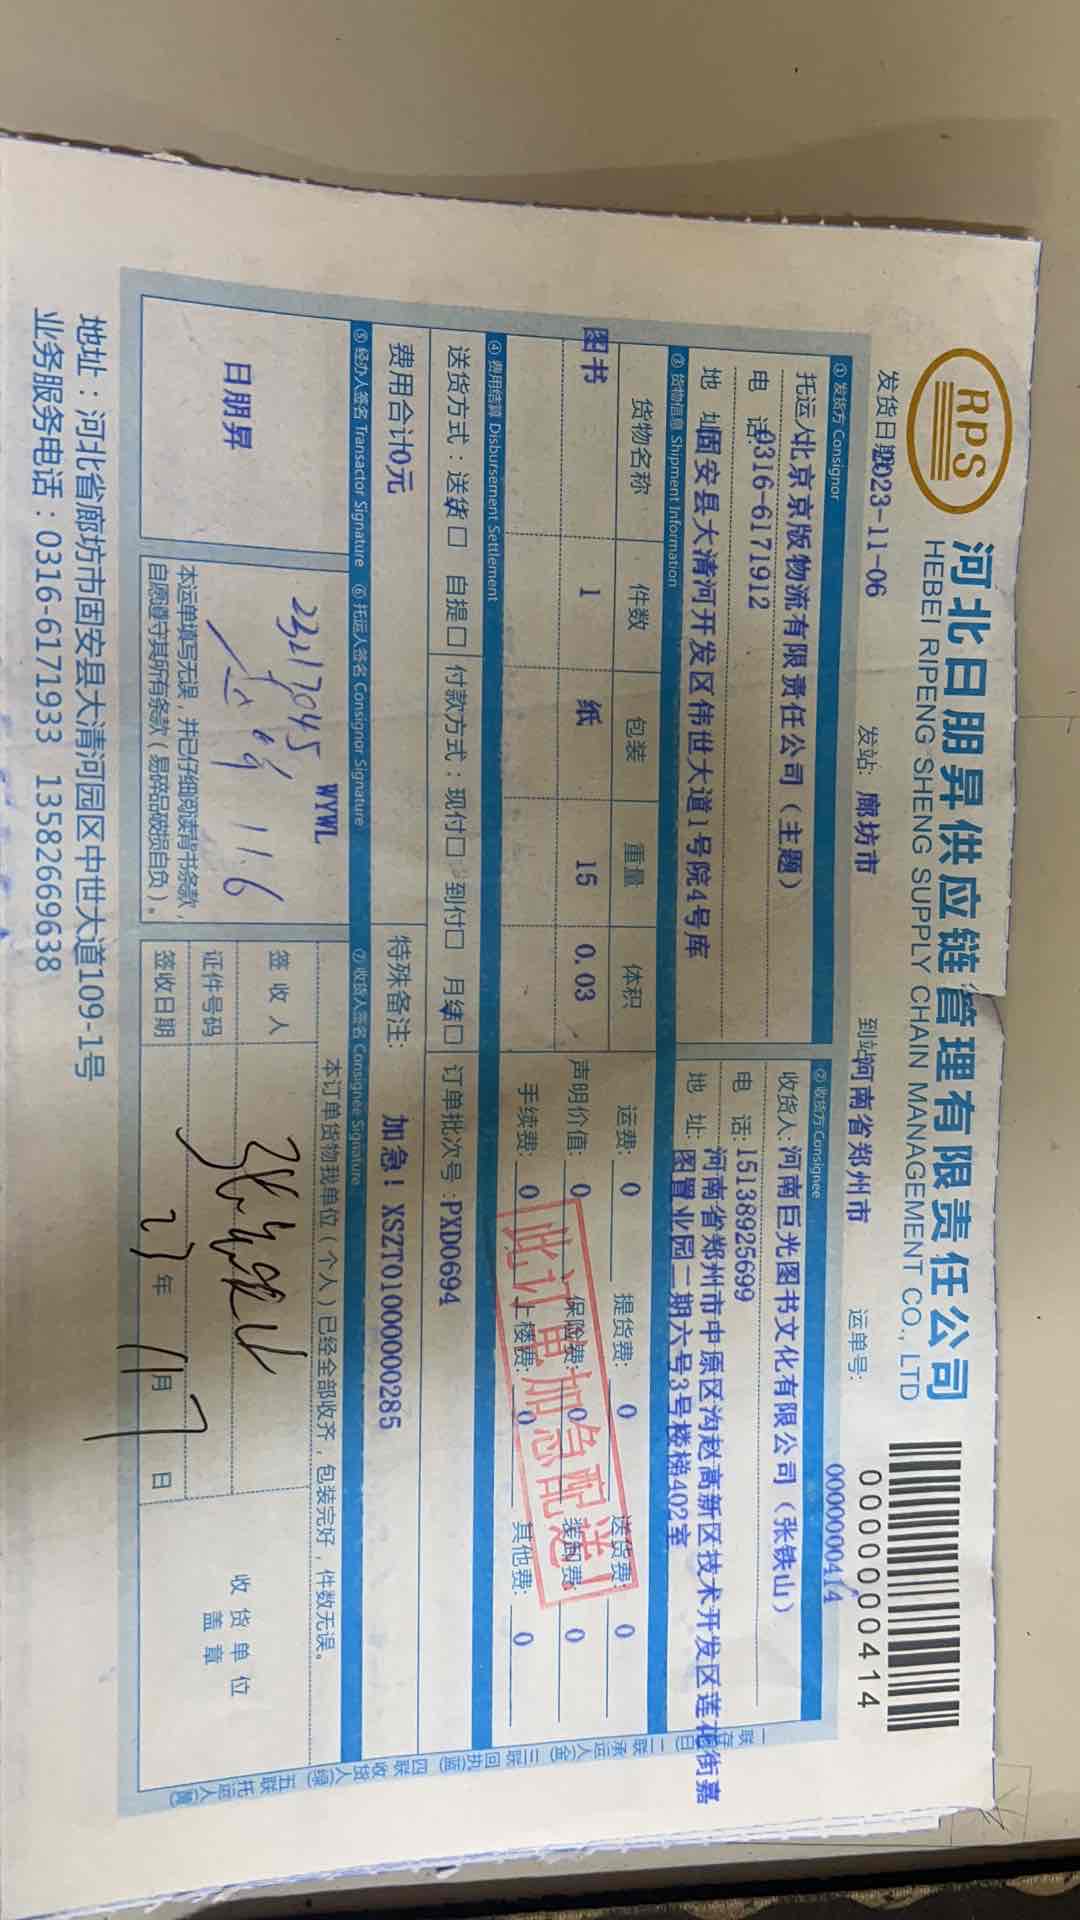 RPS
河北日朋昇供应链管理有限责任公司
HEBEI RIPENG SHENG SUPPLY CHAIN MANAGEMENT CO., LTD
0000000414
0000000414
发货日期2023-11-06 发站: 廊坊市 到站河南省郑州市 运单号:
① 发货方 Consignor ② 收货方 Consignee
托运人北京京版物流有限责任公司（主题） 收货人:河南巨光图书文化有限公司（张铁山）
电 话:0316-6171912 电 话:15138925699
地 址固安县大清河开发区伟世大道1号院4号库 地 址:河南省郑州市中原区沟赵高新区技术开发区莲花街嘉
图置业园二期六号3号楼梯402室
③ 货物信息 Shipment Information
货物名称 件数 包装 重量 体积 运费: 0 提货费: 0 送货费: 0
图书 1 纸 15 0.03 声明价值: 0 保险费: 0 装卸费: 0
手续费: 0 上楼费: 0 其他费: 0
此订单加急配送
④ 费用结算 Disbursement Settlement
送货方式：送货□ 自提□ 付款方式：现付□ 到付□ 月结□ 订单批次号:PXD0694
费用合计0元 特殊备注: 加急！XSZT01000000285
⑤ 经办人签名 Transactor Signature ⑥ 托运人签名 Consignor Signature ⑦ 收货人签名 Consignee Signature
日朋昇
WYWL
23217045
11.6
本运单填写无误，并已仔细阅读背书条款，
自愿遵守其所有条款（易碎品破损自负）。
本订单货物我单位（个人）已经全部收齐，包装完好，件数无误。
签 收 人
证件号码
签收日期 23年 11月 7日
收货单位
盖章
地址：河北省廊坊市固安县大清河园区中世大道109-1号
业务服务电话：0316-6171933 13582669638